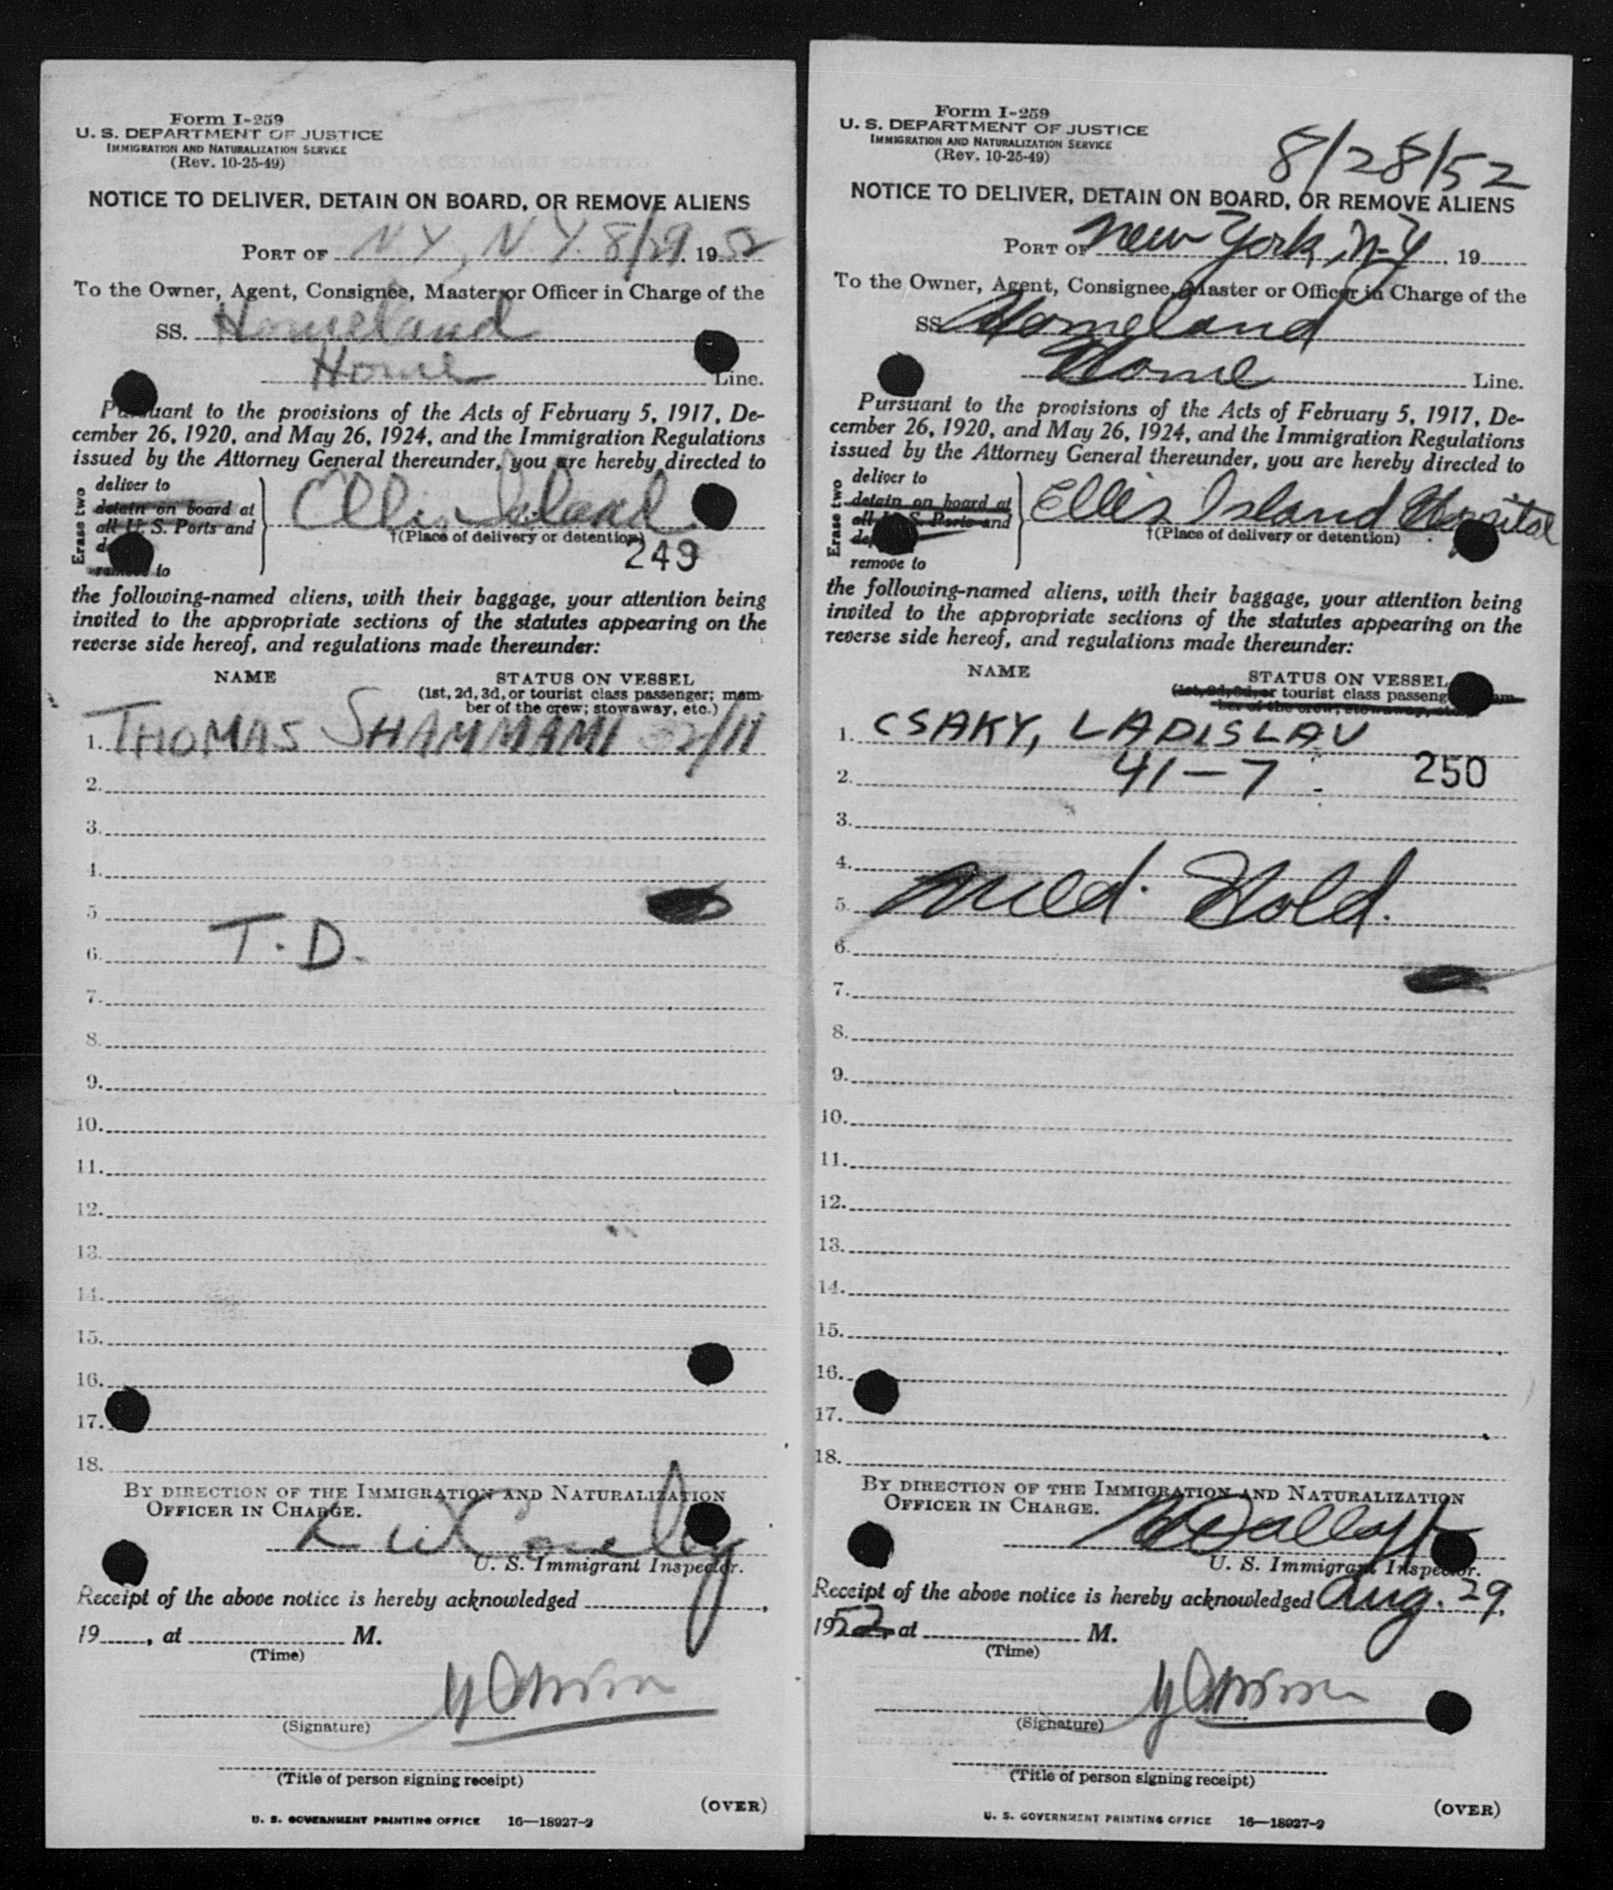 Form I-259
U. S. DEPARTMENT OF JUSTICE
IMMIGRATION AND NATURALIZATION SERVICE
(Rev. 10-25-49)
NOTICE TO DELIVER, DETAIN ON BOARD, OR REMOVE ALIENS
PORT OF N.Y., N.Y. 8/29 1952
To the Owner, Agent, Consignee, Master or Officer in Charge of the
SS. Homeland
Home Line.
Pursuant to the provisions of the Acts of February 5, 1917, De-
cember 26, 1920, and May 26, 1924, and the Immigration Regulations
issued by the Attorney General thereunder, you are hereby directed to
Erase two
deliver to
detain on board at
all U. S. Ports and
remove to
Ellis Island
†(Place of delivery or detention)
249
the following-named aliens, with their baggage, your attention being
invited to the appropriate sections of the statutes appearing on the
reverse side hereof, and regulations made thereunder:
NAME STATUS ON VESSEL
(1st, 2d, 3d, or tourist class passenger; mem-
ber of the crew; stowaway, etc.)
1. THOMAS SHAMMAMI 32/11
2.
3.
4.
5.
6. T.D.
7.
8.
9.
10.
11.
12.
13.
14.
15.
16.
17.
18.
BY DIRECTION OF THE IMMIGRATION AND NATURALIZATION
OFFICER IN CHARGE.
U. S. Immigrant Inspector.
Receipt of the above notice is hereby acknowledged ,
19 , at M.
(Time)
(Signature)
(Title of person signing receipt)
(OVER)
U. S. GOVERNMENT PRINTING OFFICE 16—18927-2
Form I-259
U. S. DEPARTMENT OF JUSTICE
IMMIGRATION AND NATURALIZATION SERVICE
(Rev. 10-25-49)
8/28/52
NOTICE TO DELIVER, DETAIN ON BOARD, OR REMOVE ALIENS
PORT OF New York, N.Y. 19
To the Owner, Agent, Consignee, Master or Officer in Charge of the
SS. Homeland
Home Line.
Pursuant to the provisions of the Acts of February 5, 1917, De-
cember 26, 1920, and May 26, 1924, and the Immigration Regulations
issued by the Attorney General thereunder, you are hereby directed to
Erase two
deliver to
detain on board at
all U. S. Ports and
remove to
Ellis Island Hospital
†(Place of delivery or detention)
the following-named aliens, with their baggage, your attention being
invited to the appropriate sections of the statutes appearing on the
reverse side hereof, and regulations made thereunder:
NAME STATUS ON VESSEL
(1st, 2d, 3d, or tourist class passenger; mem-
ber of the crew; stowaway, etc.)
1. CSAKY, LADISLAV
2. 41-7 250
3.
4.
5. Med. Hold.
6.
7.
8.
9.
10.
11.
12.
13.
14.
15.
16.
17.
18.
BY DIRECTION OF THE IMMIGRATION AND NATURALIZATION
OFFICER IN CHARGE.
U. S. Immigrant Inspector.
Receipt of the above notice is hereby acknowledged Aug. 29,
1952, at M.
(Time)
(Signature)
(Title of person signing receipt)
(OVER)
U. S. GOVERNMENT PRINTING OFFICE 16—18927-2